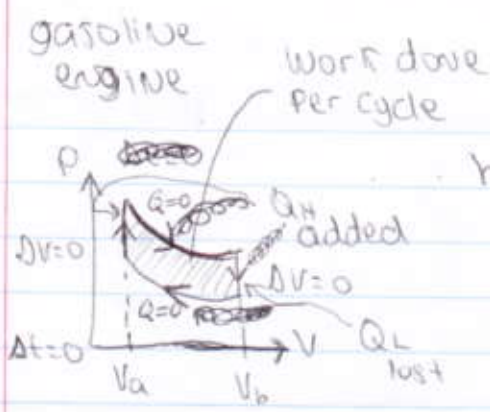 gasoline
engine
work done
per cycle
P
Q=0
QH
added
ΔV=0
ΔV=0
Q=0
Δt=0
V
QL
lost
Va
Vb